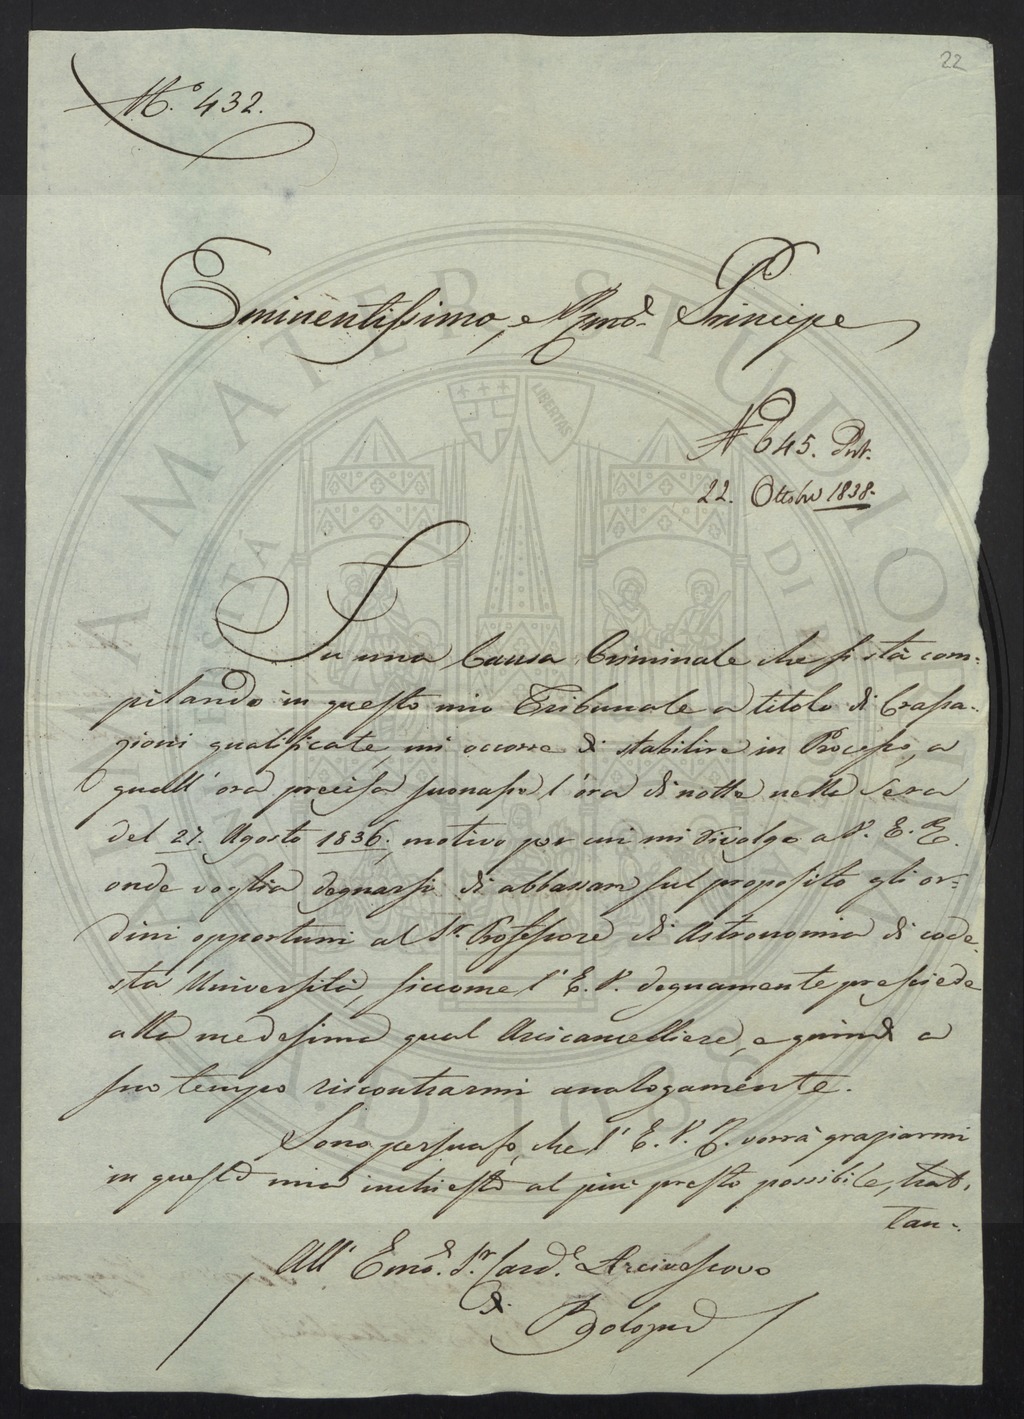 22
N.° 432.
Eminentissimo, e Rmo Principe
N 645. Prot.
22. Ottobre 1838.
In una Causa Criminale che si stà com=
pilando in questo mio Tribunale a titolo di Crassa=
zioni qualificate, mi occorre di stabilire in Processo, a
quall' ora precisa suonasse l'ora di notte nella Sera
del 27. Agosto 1836, motivo per cui mi rivolgo a V. E. R.
onde voglia degnarsi di abbassare sul proposito gli or=
dini opportuni al Sr. Professore di Astronomia di code=
sta Università, siccome l'E. V. degnamente presiede
alla medesima qual Arcicancelliere, e quindi a
suo tempo riscontrarmi analogamente.
Sono persuaso, che l'E. V. R. vorrà graziarmi
in questa mia inchiesta al più presto possibile, trat=
tan=
All' Emo. Sr. Card.e Arcivescovo
di
Bologna
ALMA MATER STUDIORUM
UNIVERSITÀ DI BOLOGNA
LIBERTAS
A.D. 1088